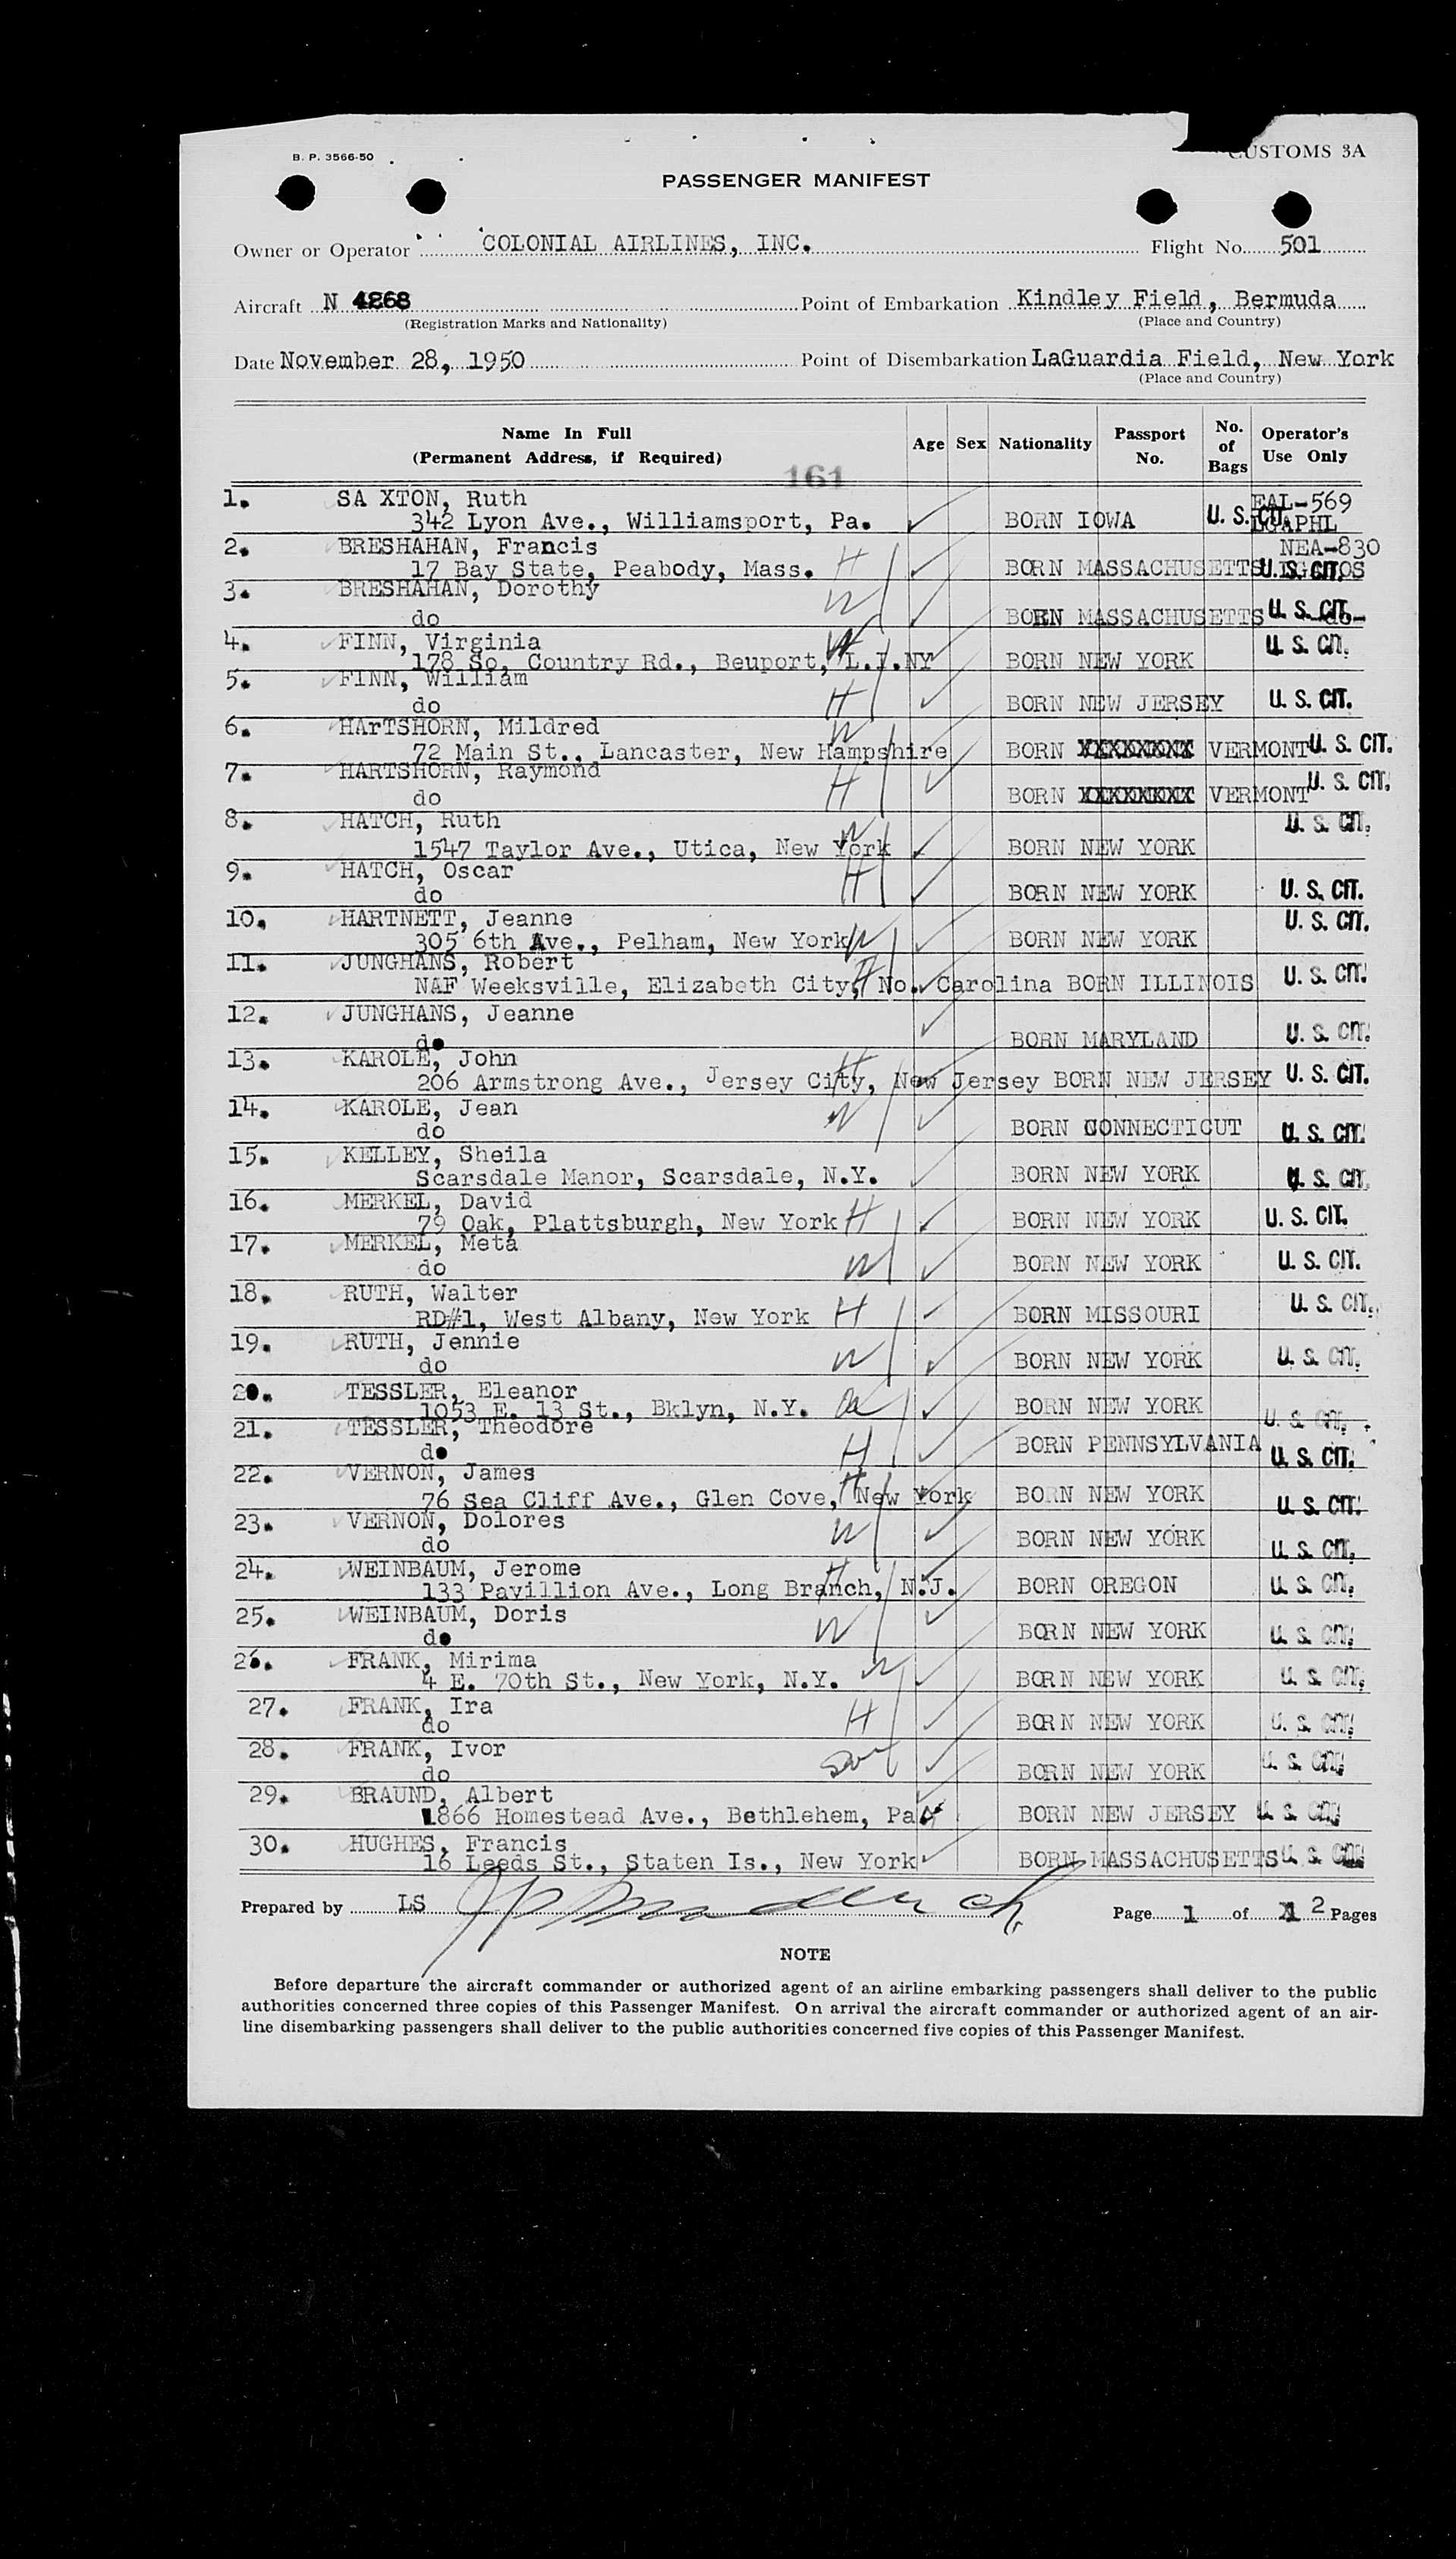 B. P. 3566-50
CUSTOMS 3A
PASSENGER MANIFEST
Owner or Operator COLONIAL AIRLINES, INC. Flight No. 501
Aircraft N 4268 Point of Embarkation Kindley Field, Bermuda
(Registration Marks and Nationality) (Place and Country)
Date November 28, 1950 Point of Disembarkation LaGuardia Field, New York
(Place and Country)
Name In Full
(Permanent Address, if Required) Age Sex Nationality Passport No. No. of Bags Operator's Use Only
161
1. SA XTON, Ruth EAL-569
342 Lyon Ave., Williamsport, Pa. BORN IOWA U. S. CIT. LGAPHL
2. BRESHAHAN, Francis NEA-830
17 Bay State, Peabody, Mass. H BORN MASSACHUSETTS U. S. CIT.
3. BRESHAHAN, Dorothy W
do BORN MASSACHUSETTS U. S. CIT. -do-
4. FINN, Virginia W U. S. CIT.
178 So. Country Rd., Beuport, L.I.NY BORN NEW YORK
5. FINN, William
do H BORN NEW JERSEY U. S. CIT.
6. HArTSHORN, Mildred W
72 Main St., Lancaster, New Hampshire BORN XXXXXXXX VERMONT U. S. CIT.
7. HARTSHORN, Raymond H
do BORN XXXXXXXX VERMONT U. S. CIT.
8. HATCH, Ruth W U. S. CIT.
1547 Taylor Ave., Utica, New York BORN NEW YORK
9. HATCH, Oscar H
do BORN NEW YORK U. S. CIT.
10. HARTNETT, Jeanne U. S. CIT.
305 6th Ave., Pelham, New York W BORN NEW YORK
11. JUNGHANS, Robert H
NAF Weeksville, Elizabeth City, No. Carolina BORN ILLINOIS U. S. CIT.
12. JUNGHANS, Jeanne
do BORN MARYLAND U. S. CIT.
13. KAROLE, John H
206 Armstrong Ave., Jersey City, New Jersey BORN NEW JERSEY U. S. CIT.
14. KAROLE, Jean W
do BORN CONNECTICUT U. S. CIT.
15. KELLEY, Sheila
Scarsdale Manor, Scarsdale, N.Y. BORN NEW YORK U. S. CIT.
16. MERKEL, David
79 Oak, Plattsburgh, New York H BORN NEW YORK U. S. CIT.
17. MERKEL, Meta
do W BORN NEW YORK U. S. CIT.
18. RUTH, Walter
RD#1, West Albany, New York H BORN MISSOURI U. S. CIT.
19. RUTH, Jennie
do W BORN NEW YORK U. S. CIT.
20. TESSLER, Eleanor
1053 E. 13 St., Bklyn, N.Y. BORN NEW YORK U. S. CIT.
21. TESSLER, Theodore
do H BORN PENNSYLVANIA U. S. CIT.
22. VERNON, James H
76 Sea Cliff Ave., Glen Cove, New York BORN NEW YORK U. S. CIT.
23. VERNON, Dolores
do W BORN NEW YORK U. S. CIT.
24. WEINBAUM, Jerome H
133 Pavillion Ave., Long Branch, N.J. BORN OREGON U. S. CIT.
25. WEINBAUM, Doris
do W BORN NEW YORK U. S. CIT.
26. FRANK, Mirima W
4 E. 70th St., New York, N.Y. BORN NEW YORK U. S. CIT.
27. FRANK, Ira
do H BORN NEW YORK U. S. CIT.
28. FRANK, Ivor
do son BORN NEW YORK U. S. CIT.
29. BRAUND, Albert
1866 Homestead Ave., Bethlehem, Pa. BORN NEW JERSEY U. S. CIT.
30. HUGHES, Francis
16 Leeds St., Staten Is., New York BORN MASSACHUSETTS U. S. CIT.
Prepared by LS Page 1 of 2 Pages
NOTE
Before departure the aircraft commander or authorized agent of an airline embarking passengers shall deliver to the public
authorities concerned three copies of this Passenger Manifest. On arrival the aircraft commander or authorized agent of an air-
line disembarking passengers shall deliver to the public authorities concerned five copies of this Passenger Manifest.